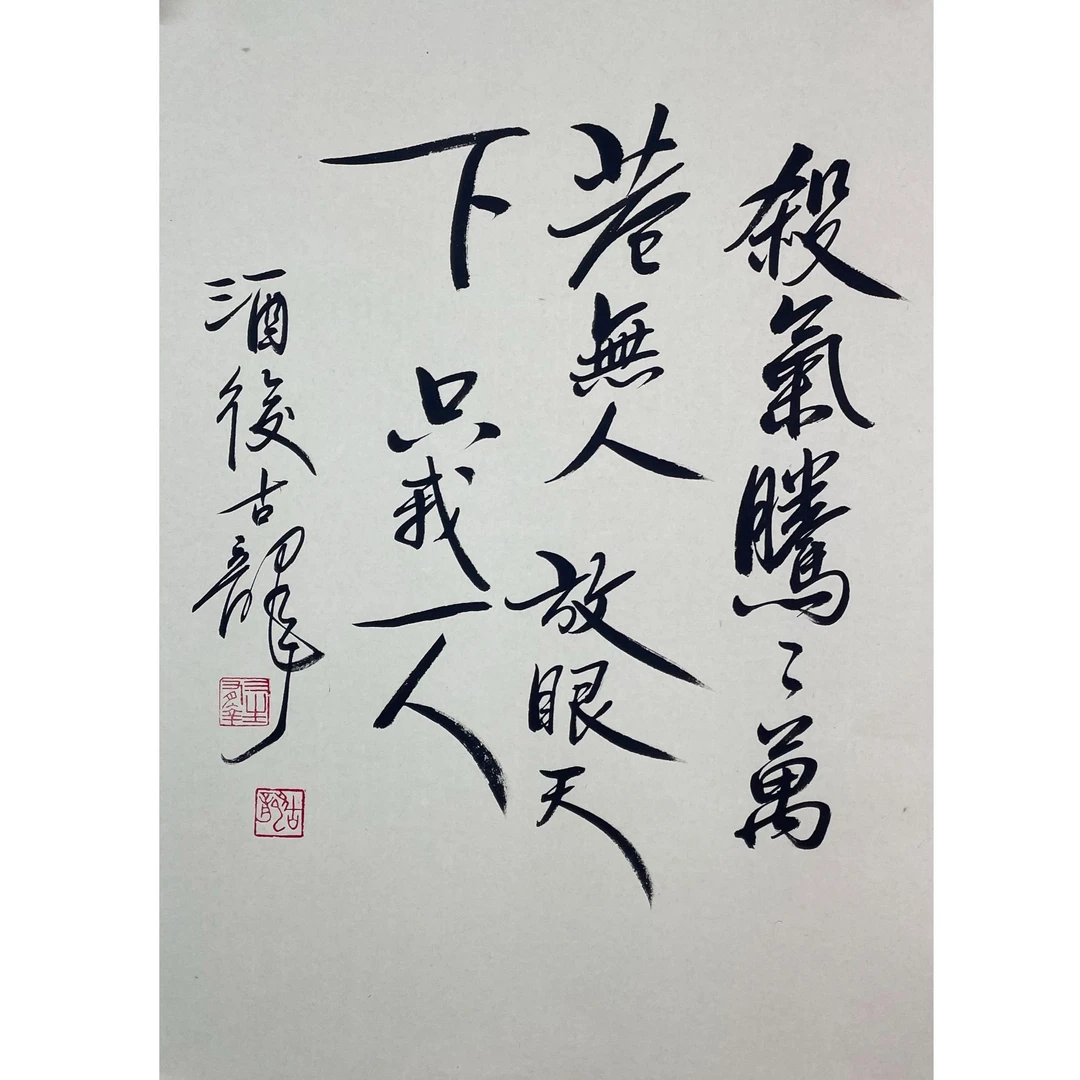 殺氣騰〻萬
巷無人 放眼天
下 只我一人
酒後古龍
古龍